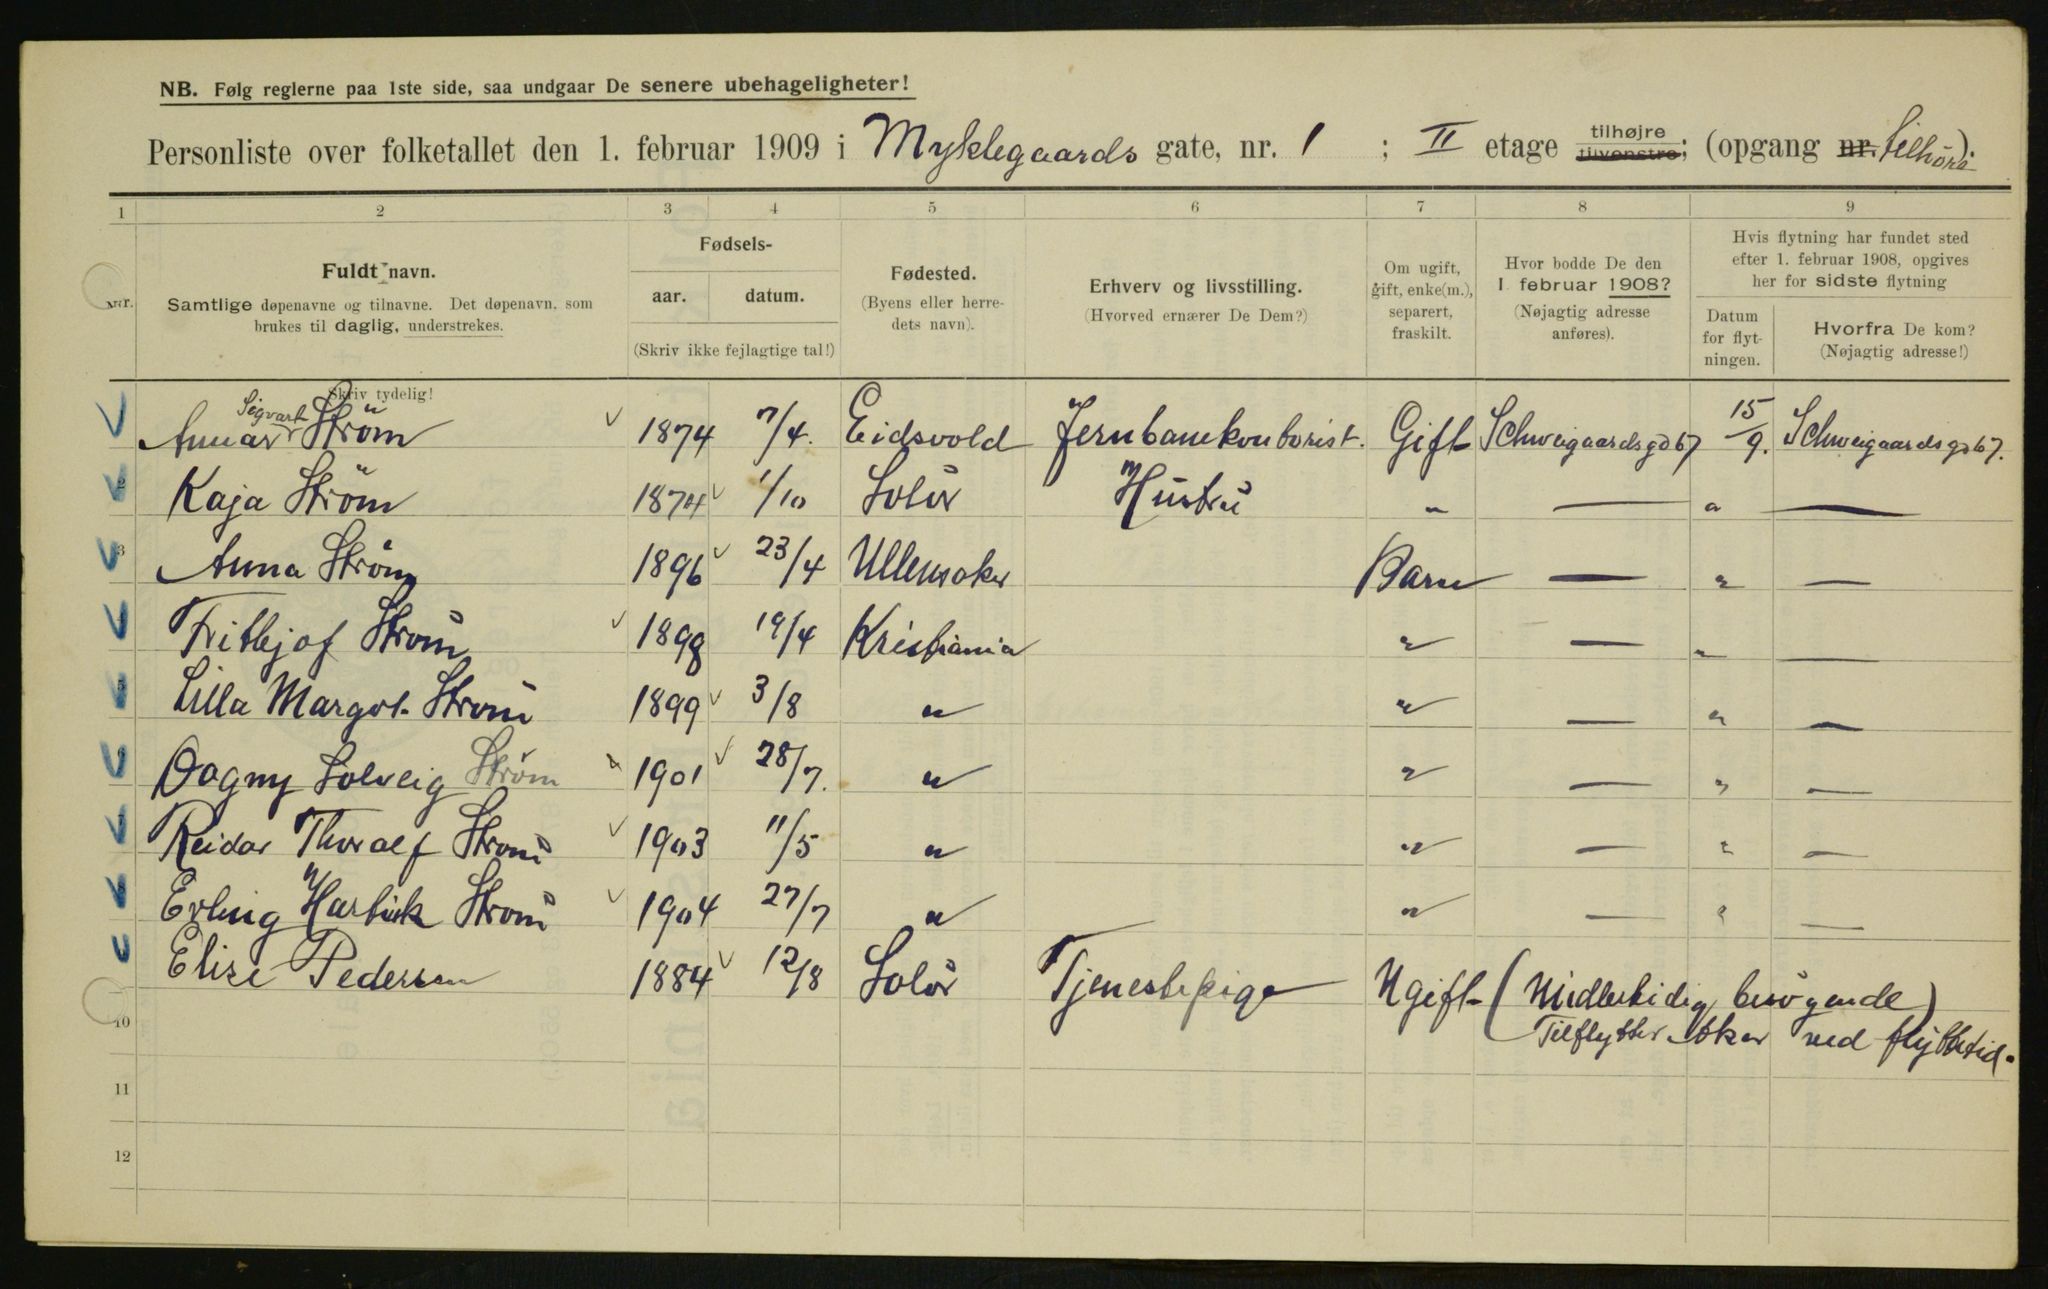 NB. Følg reglerne paa 1ste side, saa undgaar De senere ubehageligheter!
Personliste over folketallet den 1. februar 1909 i Myklegaards gate, nr. 1 ; II etage tilhøjre tilvenstre; (opgang nr. tilhöre).
1 2 3 4 5 6 7 8 9
Nr.
Fuldt navn.
Samtlige døpenavne og tilnavne. Det døpenavn, som
brukes til daglig, understrekes.
Skriv tydelig!
Fødsels-
aar. datum.
(Skriv ikke fejlagtige tal!)
Fødested.
(Byens eller herre-
dets navn).
Erhverv og livsstilling.
(Hvorved ernærer De Dem?)
Om ugift,
gift, enke(m.),
separert,
fraskilt.
Hvor bodde De den
1. februar 1908?
(Nøjagtig adresse
anføres).
Hvis flytning har fundet sted
efter 1. februar 1908, opgives
her for sidste flytning
Datum
for flyt-
ningen.
Hvorfra De kom?
(Nøjagtig adresse!)
Sigvart
Annar Ström 1874 7/4. Eidsvold Jernbanekontorist. Gift Schweigaardsgd 67 15/9. Schweigaardsgd 67.
2 Kaja Ström 1874 1/10 Solör Hustru " — " —
3 Anna Ström 1896 23/4 Ullensaker Barn — " —
4 Fritjof Ström 1898 19/4 Kristiania " — " —
5 Lilla Margot Ström 1899 3/8 " " — " —
6 Dagny Solveig Ström 1901 28/7. " " — " —
7 Reidar Thoralf Ström 1903 11/5 " " — " —
8 Erling Ström 1904 27/7 " " — " —
Elise Pedersen 1884 12/8 Solör Tjenestepige Ugift (Midlertidig besögende)
10 Tilflytter Aker ved flyttetid.
11
12